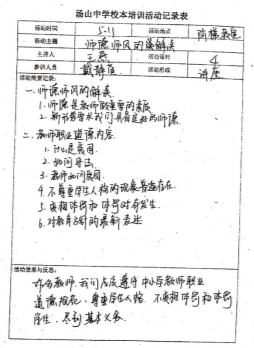 汤山中学校本培训活动记录表
活动时间 5.11 活动地点
活动主题 师德师风的解读
主持人 活动课时 4
参训人员 戴静值 活动形式 讲座
活动简要记录:
一.师德师风的解读
1.师德是教师最重要的素质
2.新形势要求我们具有良好的师德
二.教师职业道德内容
1.什么是
2.如何
3.教师
4.不尊重学生人格的现象普遍存在
5.变相体罚和体罚时有发生
6.对教育方针的最新表述
活动效果与反思:
作为教师,我们应该遵守中小学教师职业
道德规范,尊重学生人格,不变相体罚和体罚
学生,尽到基本义务.